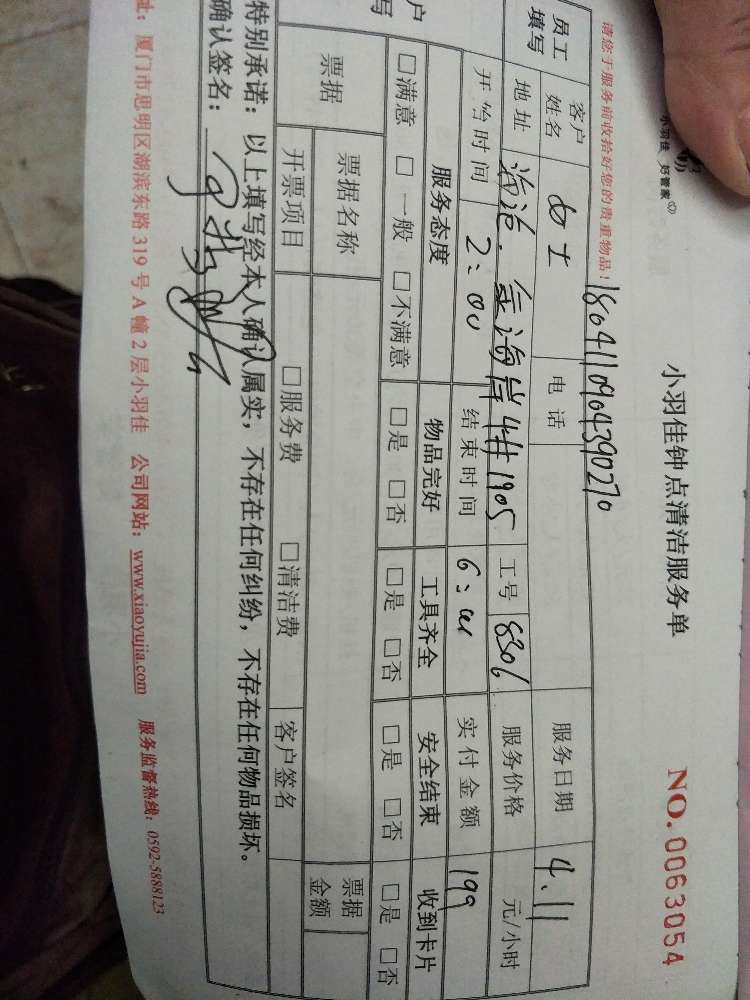 小羽佳 好管家
小羽佳钟点清洁服务单
NO.0063054
请您于服务前收拾好您的贵重物品!
1804110904390270
员工填写 客户姓名 女士 电话 服务日期 4.11
地址 海沧.金海岸4#1905 工号 8306 服务价格 元/小时
开始时间 2:00 结束时间 6:00 实付金额 199
户写 服务态度 物品完好 工具齐全 安全结束 收到卡片
□满意 □一般 □不满意 □是 □否 □是 □否 □是 □否 □是 □否
票据 票据名称 票据金额
开票项目 □服务费 □清洁费 客户签名
特别承诺:以上填写经本人确认属实,不存在任何纠纷,不存在任何物品损坏。
确认签名:
址:厦门市思明区湖滨东路319号A幢2层小羽佳 公司网站:www.xiaoyujia.com 服务监督热线:0592-5888123